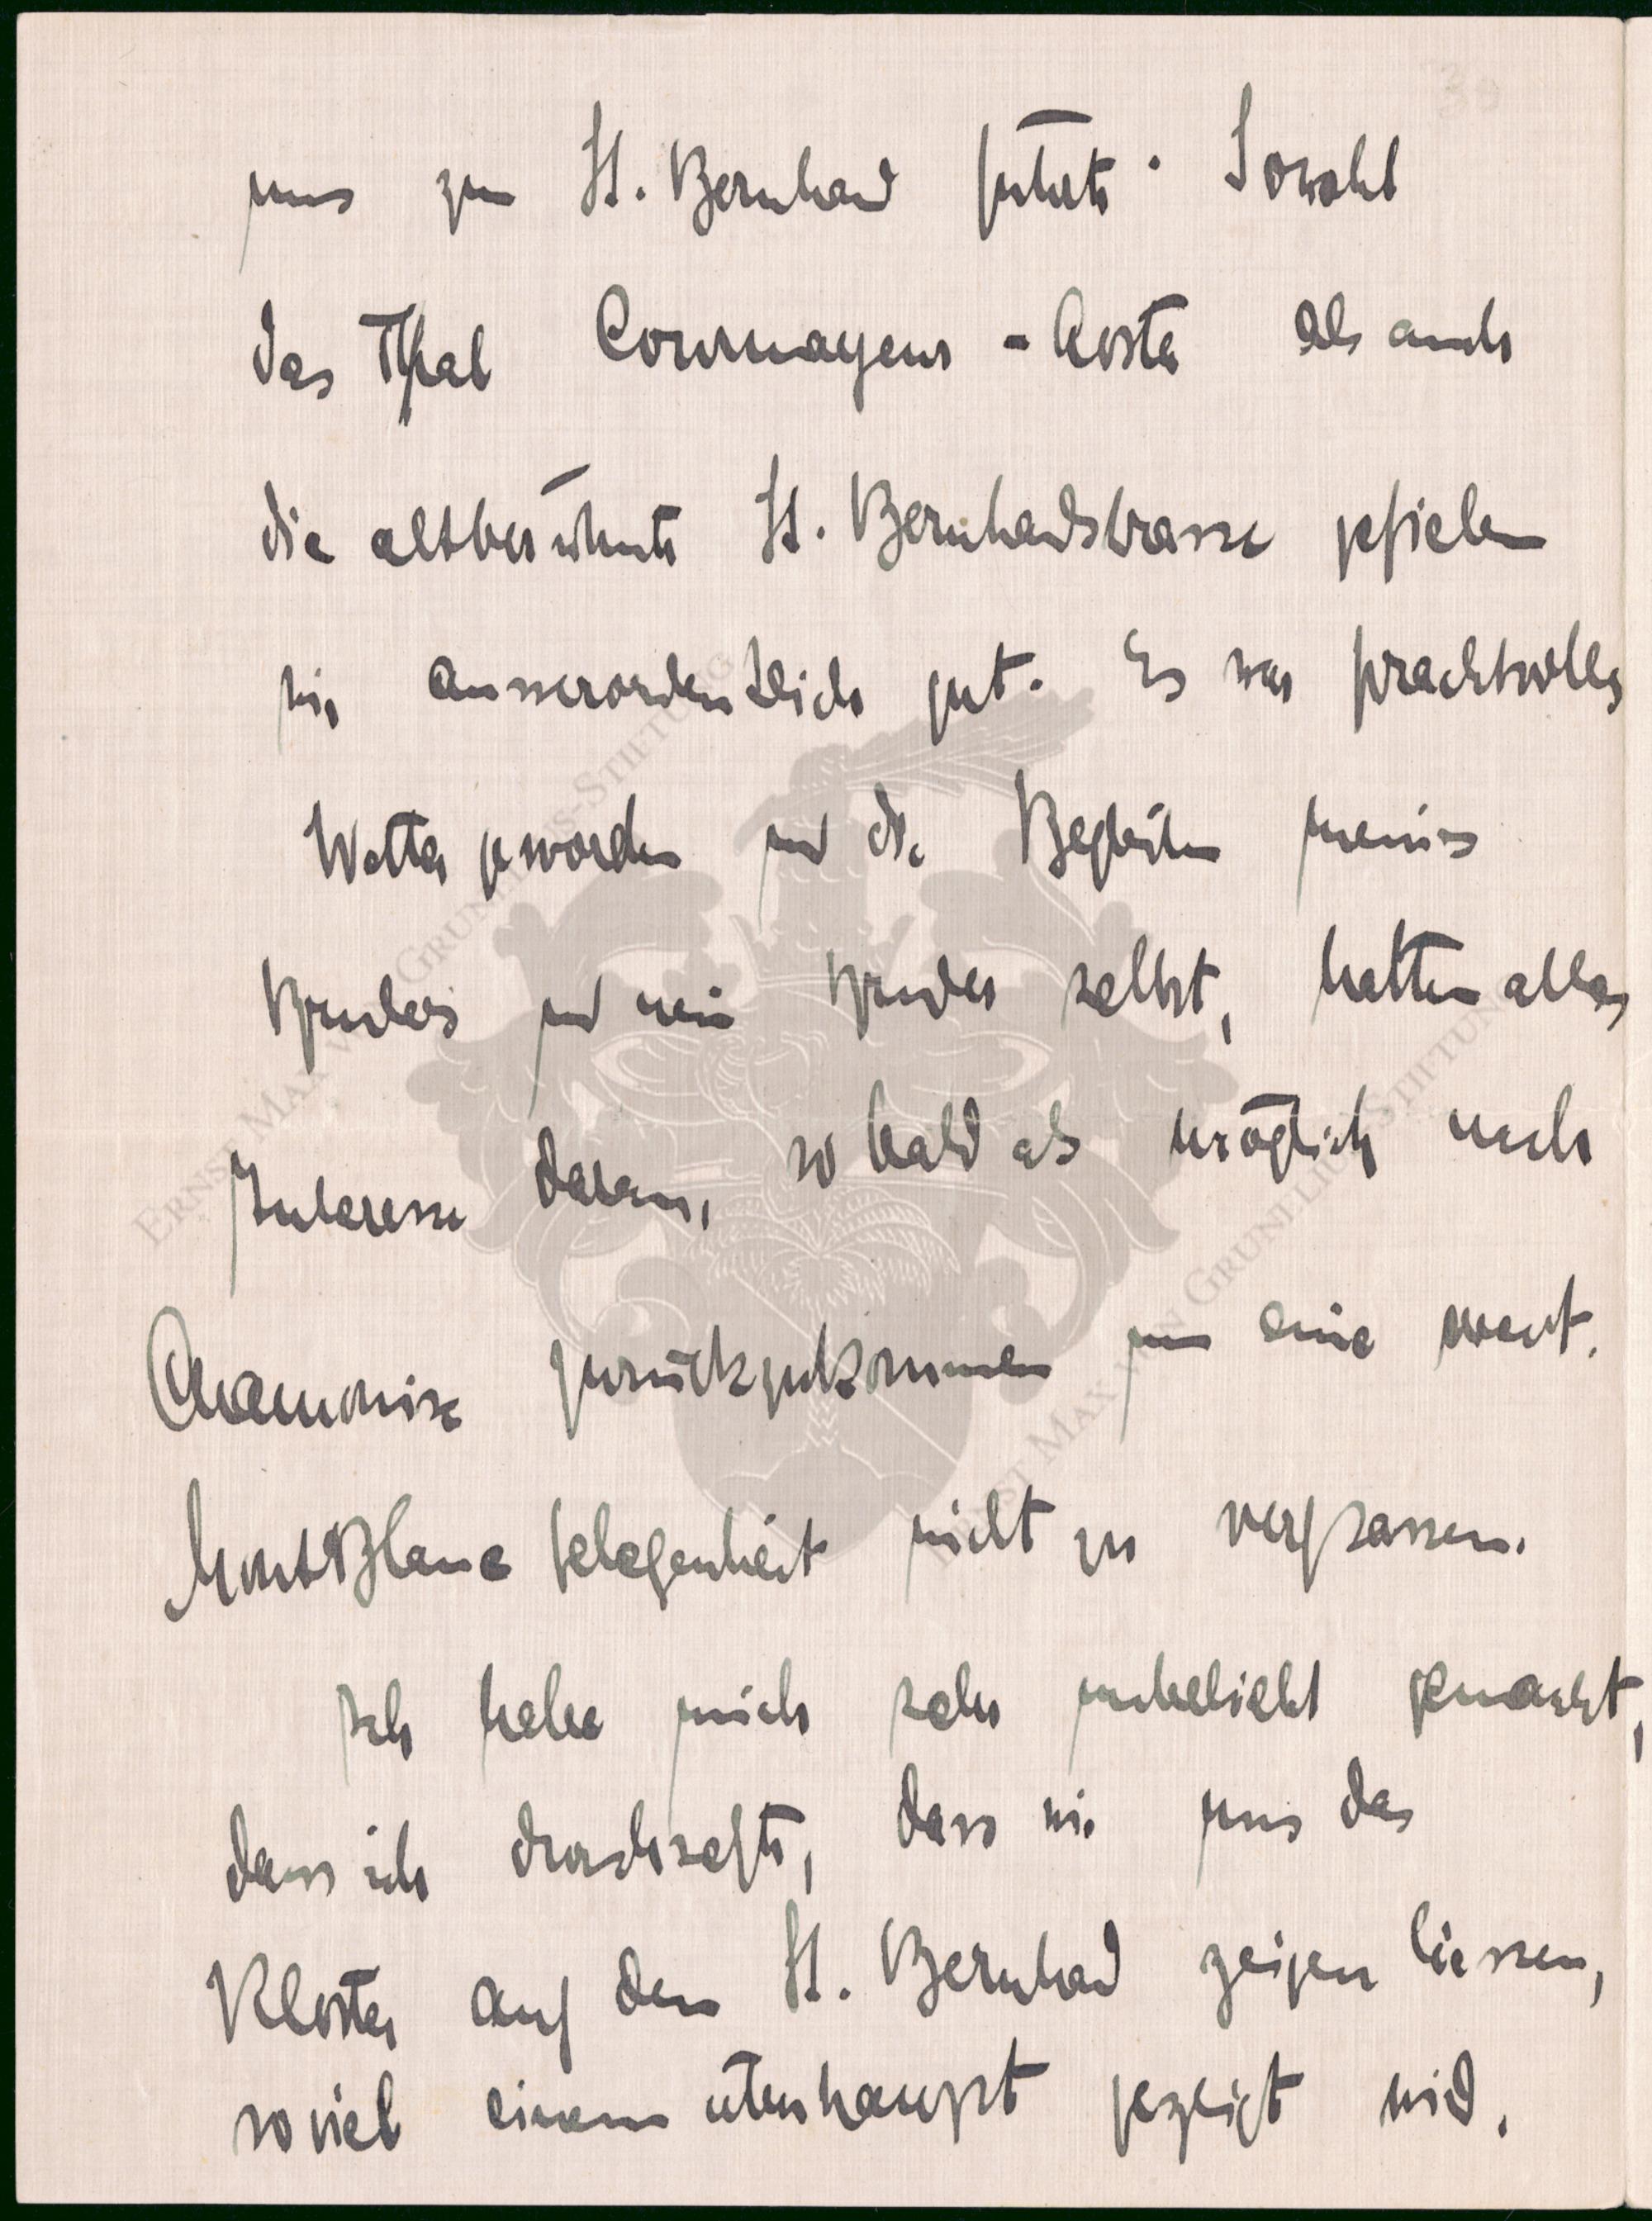 uns zum St. Bernhard führte. Sowohl
das Thal Courmayeur - Aosta als auch
die altberühmte St. Bernhardstrasse gefielen
mir ausserordentlich gut. Es war prachtvolles
Wetter geworden und die Begleiter meines
Bruders und mein Bruder selbst, hatten alles
Interesse daran, so bald als möglich nach
Chamonix zurückzukommen um eine
MontBlanc gelegenheit nicht zu verpassen.
Ich habe mich sehr unbeliebt gemacht,
dass ich durchsetzte, dass wir uns das
Kloster auf dem St. Bernhard zeigen liessen,
soviel einem überhaupt gezeigt wird.
ERNST MAX VON GRUNELIUS-STIFTUNG
ERNST MAX VON GRUNELIUS-STIFTUNG